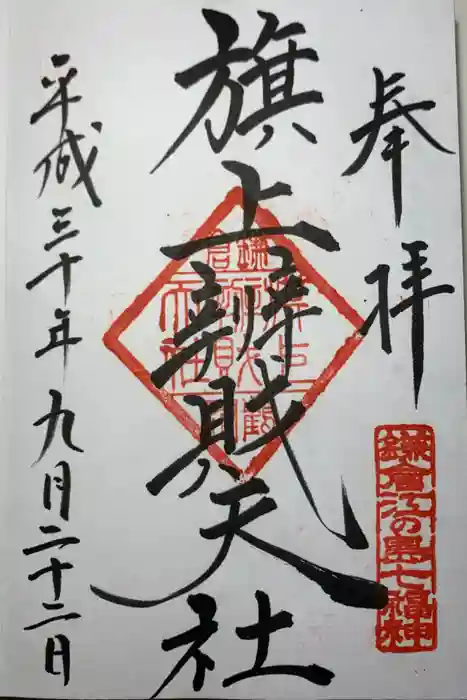 奉拝
鎌倉江の島七福神
旗上辨財天社
平成三十年九月二十二日